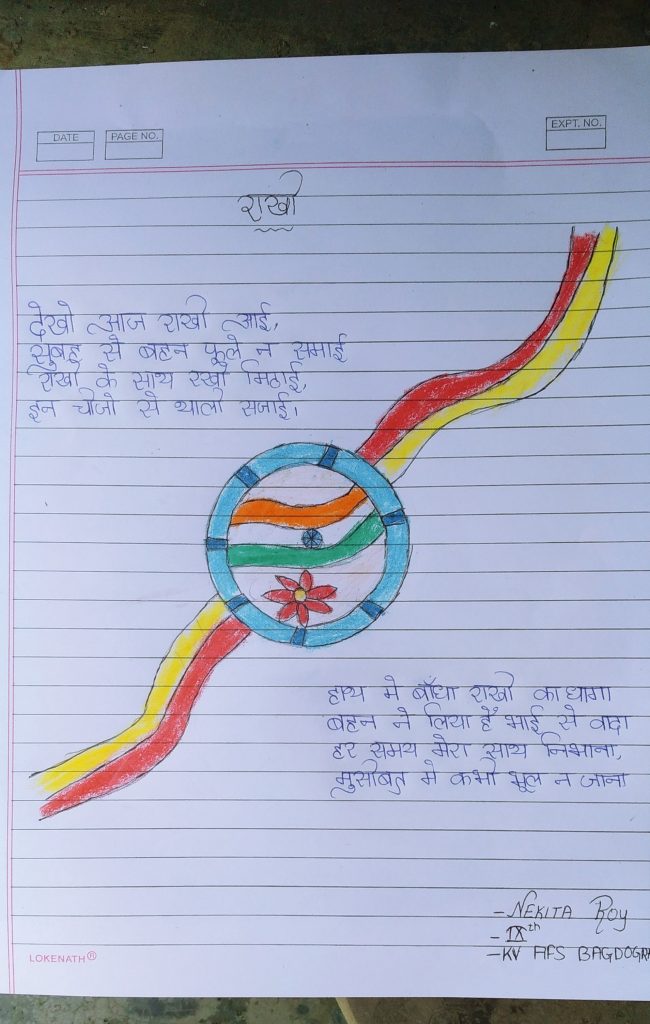 DATE
PAGE NO.
EXPT. NO.
राखी
देखो आज राखी आई,
सुबह से बहन फूले न समाई
राखी के साथ रखी मिठाई,
इन चीजो से थाली सजाई।
हाथ मे बाँधा राखी का धागा
बहन ने लिया हैं भाई से वादा
हर समय मेरा साथ निभाना,
मुसीबत मे कभी भूल न जाना
- NEKITA ROY
- IXth
- KV AFS BAGDOGRA
LOKENATH®